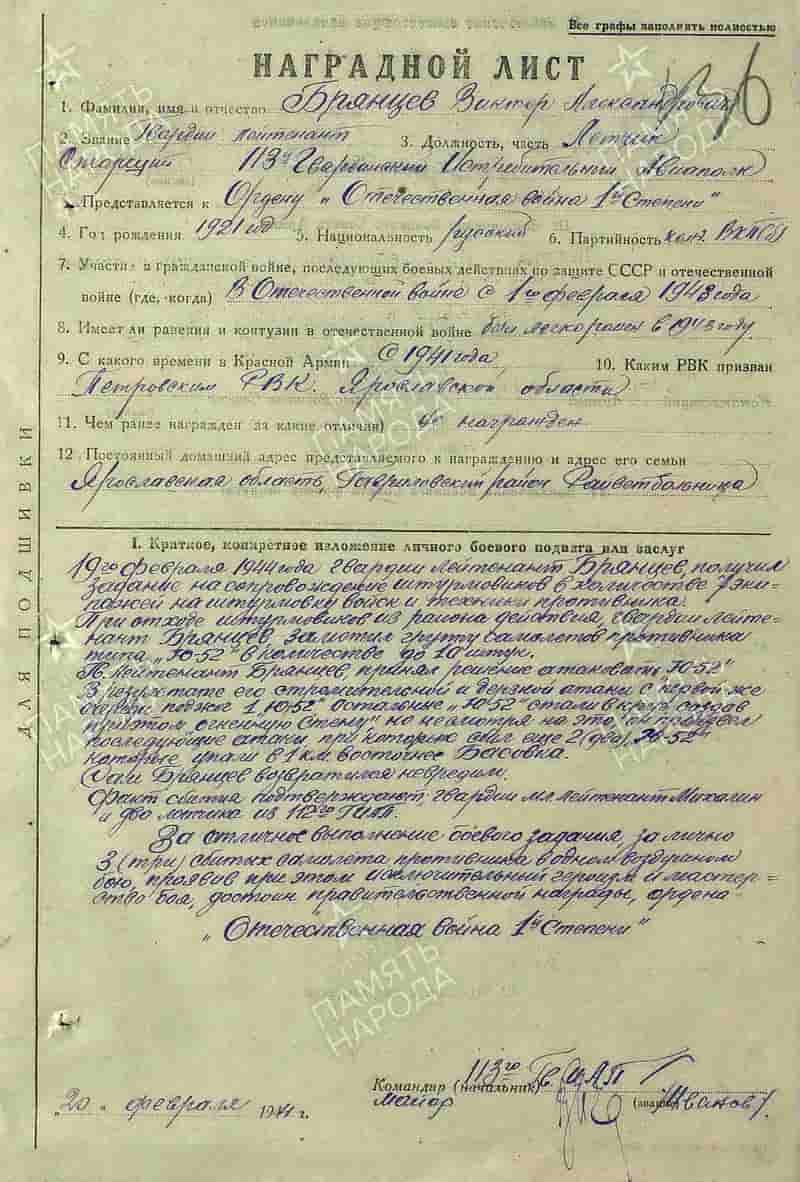 Все графы заполнять полностью
НАГРАДНОЙ ЛИСТ
136
1. Фамилия, имя и отчество Брянцев Виктор Александрович
2. Звание Гвардии лейтенант 3. Должность, часть Летчик
Старший 113й Гвардейский Истребительный Авиаполк
Представляется к Ордену „Отечественная война 1й Степени"
4. Год рождения 1921 год 5. Национальность русский 6. Партийность канд. ВКП(б)
7. Участие в гражданской войне, последующих боевых действиях по защите СССР и отечественной
войне (где, когда) В Отечественной войне с 1го февраля 1943 года
8. Имеет ли ранения и контузии в отечественной войне был легко ранен в 1943 году
9. С какого времени в Красной Армии с 1941 года 10. Каким РВК призван
Петровским РВК. Ярославской области
11. Чем ранее награжден (за какие отличия) не награжден
12. Постоянный домашний адрес представляемого к награждению и адрес его семьи
Ярославская область, Гавриловский район Райветбольница
ДЛЯ ПОДШИВКИ
I. Краткое, конкретное изложение личного боевого подвига или заслуг
19го февраля 1944 года гвардии лейтенант Брянцев, получил
задание на сопровождение штурмовиков в количестве 7 эки-
пажей на штурмовку войск и техники противника.
При отходе штурмовиков из района действия, гвардии лейте-
нант Брянцев заметил группу самолетов противника
типа „Ю-52" в количестве до 10 штук.
Гв. Лейтенант Брянцев, принял решение атаковать „Ю-52"
В результате его стремительной и дерзкой атаки с первой же
очереди поджег 1 Ю-52" остальные „Ю-52" стали в круг создав
при этом огненную стену" но несмотря на это, он произвел
последующие атаки при которых сбил еще 2 (два) „Ю-52"
которые упали в 1 км. восточнее Басовка.
Сам Брянцев возвратился невредим.
Факт сбития подтверждают: гвардии мл. лейтенант Михалин
и два летчика из 112го ГИАП.
За отличное выполнение боевого задания, за лично
3 (три) сбитых самолета противника в одном воздушном
бою, проявив при этом исключительный героизм и мастер-
ство боя, достоин правительственной награды, ордена
„Отечественная война 1й Степени"
Командир (начальник) 113го Гв. ИАП
майор (звание) /Иванов/
„20" февраля 1944 г.
ПАМЯТЬ НАРОДА